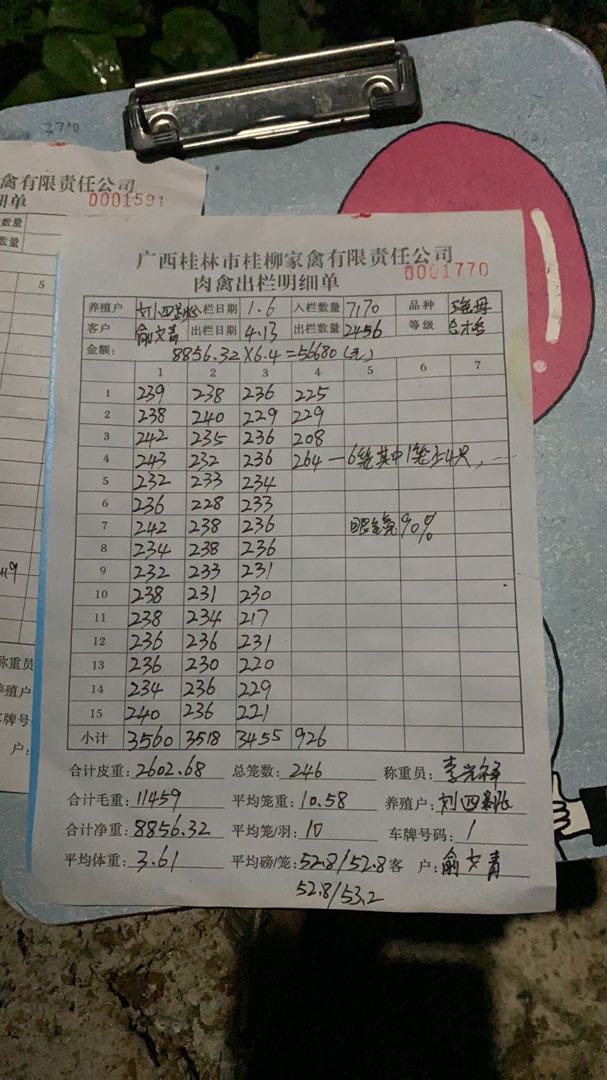 3710
禽有限责任公司
细单 0001591
数量
数量
5
称重员
养殖户
车牌号
户:
广西桂林市桂柳家禽有限责任公司
肉禽出栏明细单 0001770
养殖户 刘四 入栏日期 1.6 入栏数量 7170 品种
客户 俞文青 出栏日期 4.13 出栏数量 2456 等级 合格
金额: 8856.32×6.4=56680(元)
1 2 3 4 5 6 7
1 239 238 236 225
2 238 240 229 229
3 242 235 236 208
4 243 232 236 264 — 6笼其中1笼 4只,
5 232 233 234
6 236 228 233
7 242 238 236 90%
8 234 238 236
9 232 233 231
10 238 231 230
11 238 234 217
12 236 236 231
13 236 230 220
14 234 236 229
15 240 236 221
小计 3560 3518 3455 926
合计皮重: 2602.68 总笼数: 246 称重员: 李
合计毛重: 11459 平均笼重: 10.58 养殖户: 刘四
合计净重: 8856.32 平均笼/羽: 10 车牌号码: 1
平均体重: 3.61 平均磅/笼: 52.8/52.8 客 户: 俞文青
52.8/53.2